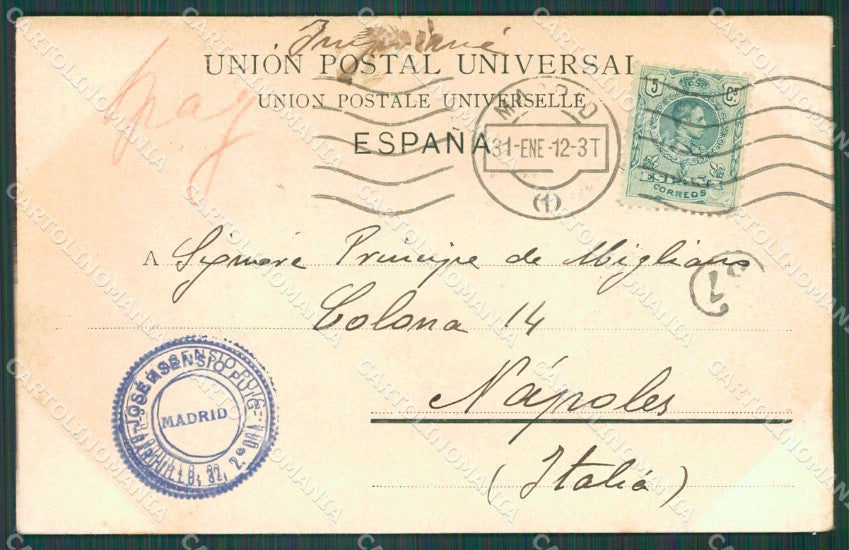 UNIÓN POSTAL UNIVERSAL
UNION POSTALE UNIVERSELLE
ESPAÑA
MADRID
31-ENE-12-3T
(1)
5 Cs
ESPAÑA
CORREOS
A Signore Principe de Migliano
Colona 14
Nápoles
(Italia)
JOSÉ ASENSIO PUIG
MADRID
32, 2.º
CARTOLINOMANIA